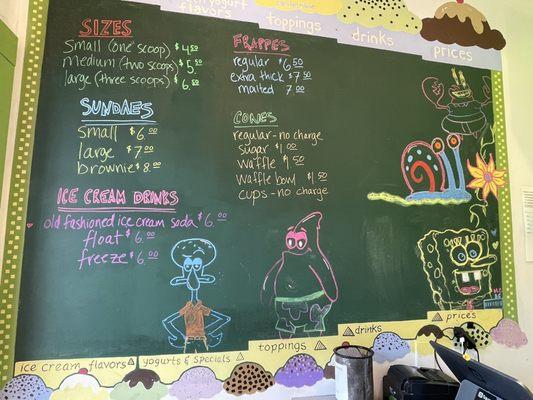 yogurt
flavors
toppings
drinks
prices
SIZES
Small (one scoop) $4.50
medium (two scoops) $5.50
large (three scoops) $6.50
SUNDAES
Small $6.00
large $7.00
brownie $8.00
ICE CREAM DRINKS
old fashioned ice cream soda $6.00
float $6.00
freeze $6.00
FRAPPES
regular $6.50
extra thick $7.50
malted 7.00
CONES
regular - no charge
sugar $1.00
waffle $1.50
waffle bowl $1.50
cups - no charge
ice cream flavors
yogurts & specials
toppings
drinks
prices